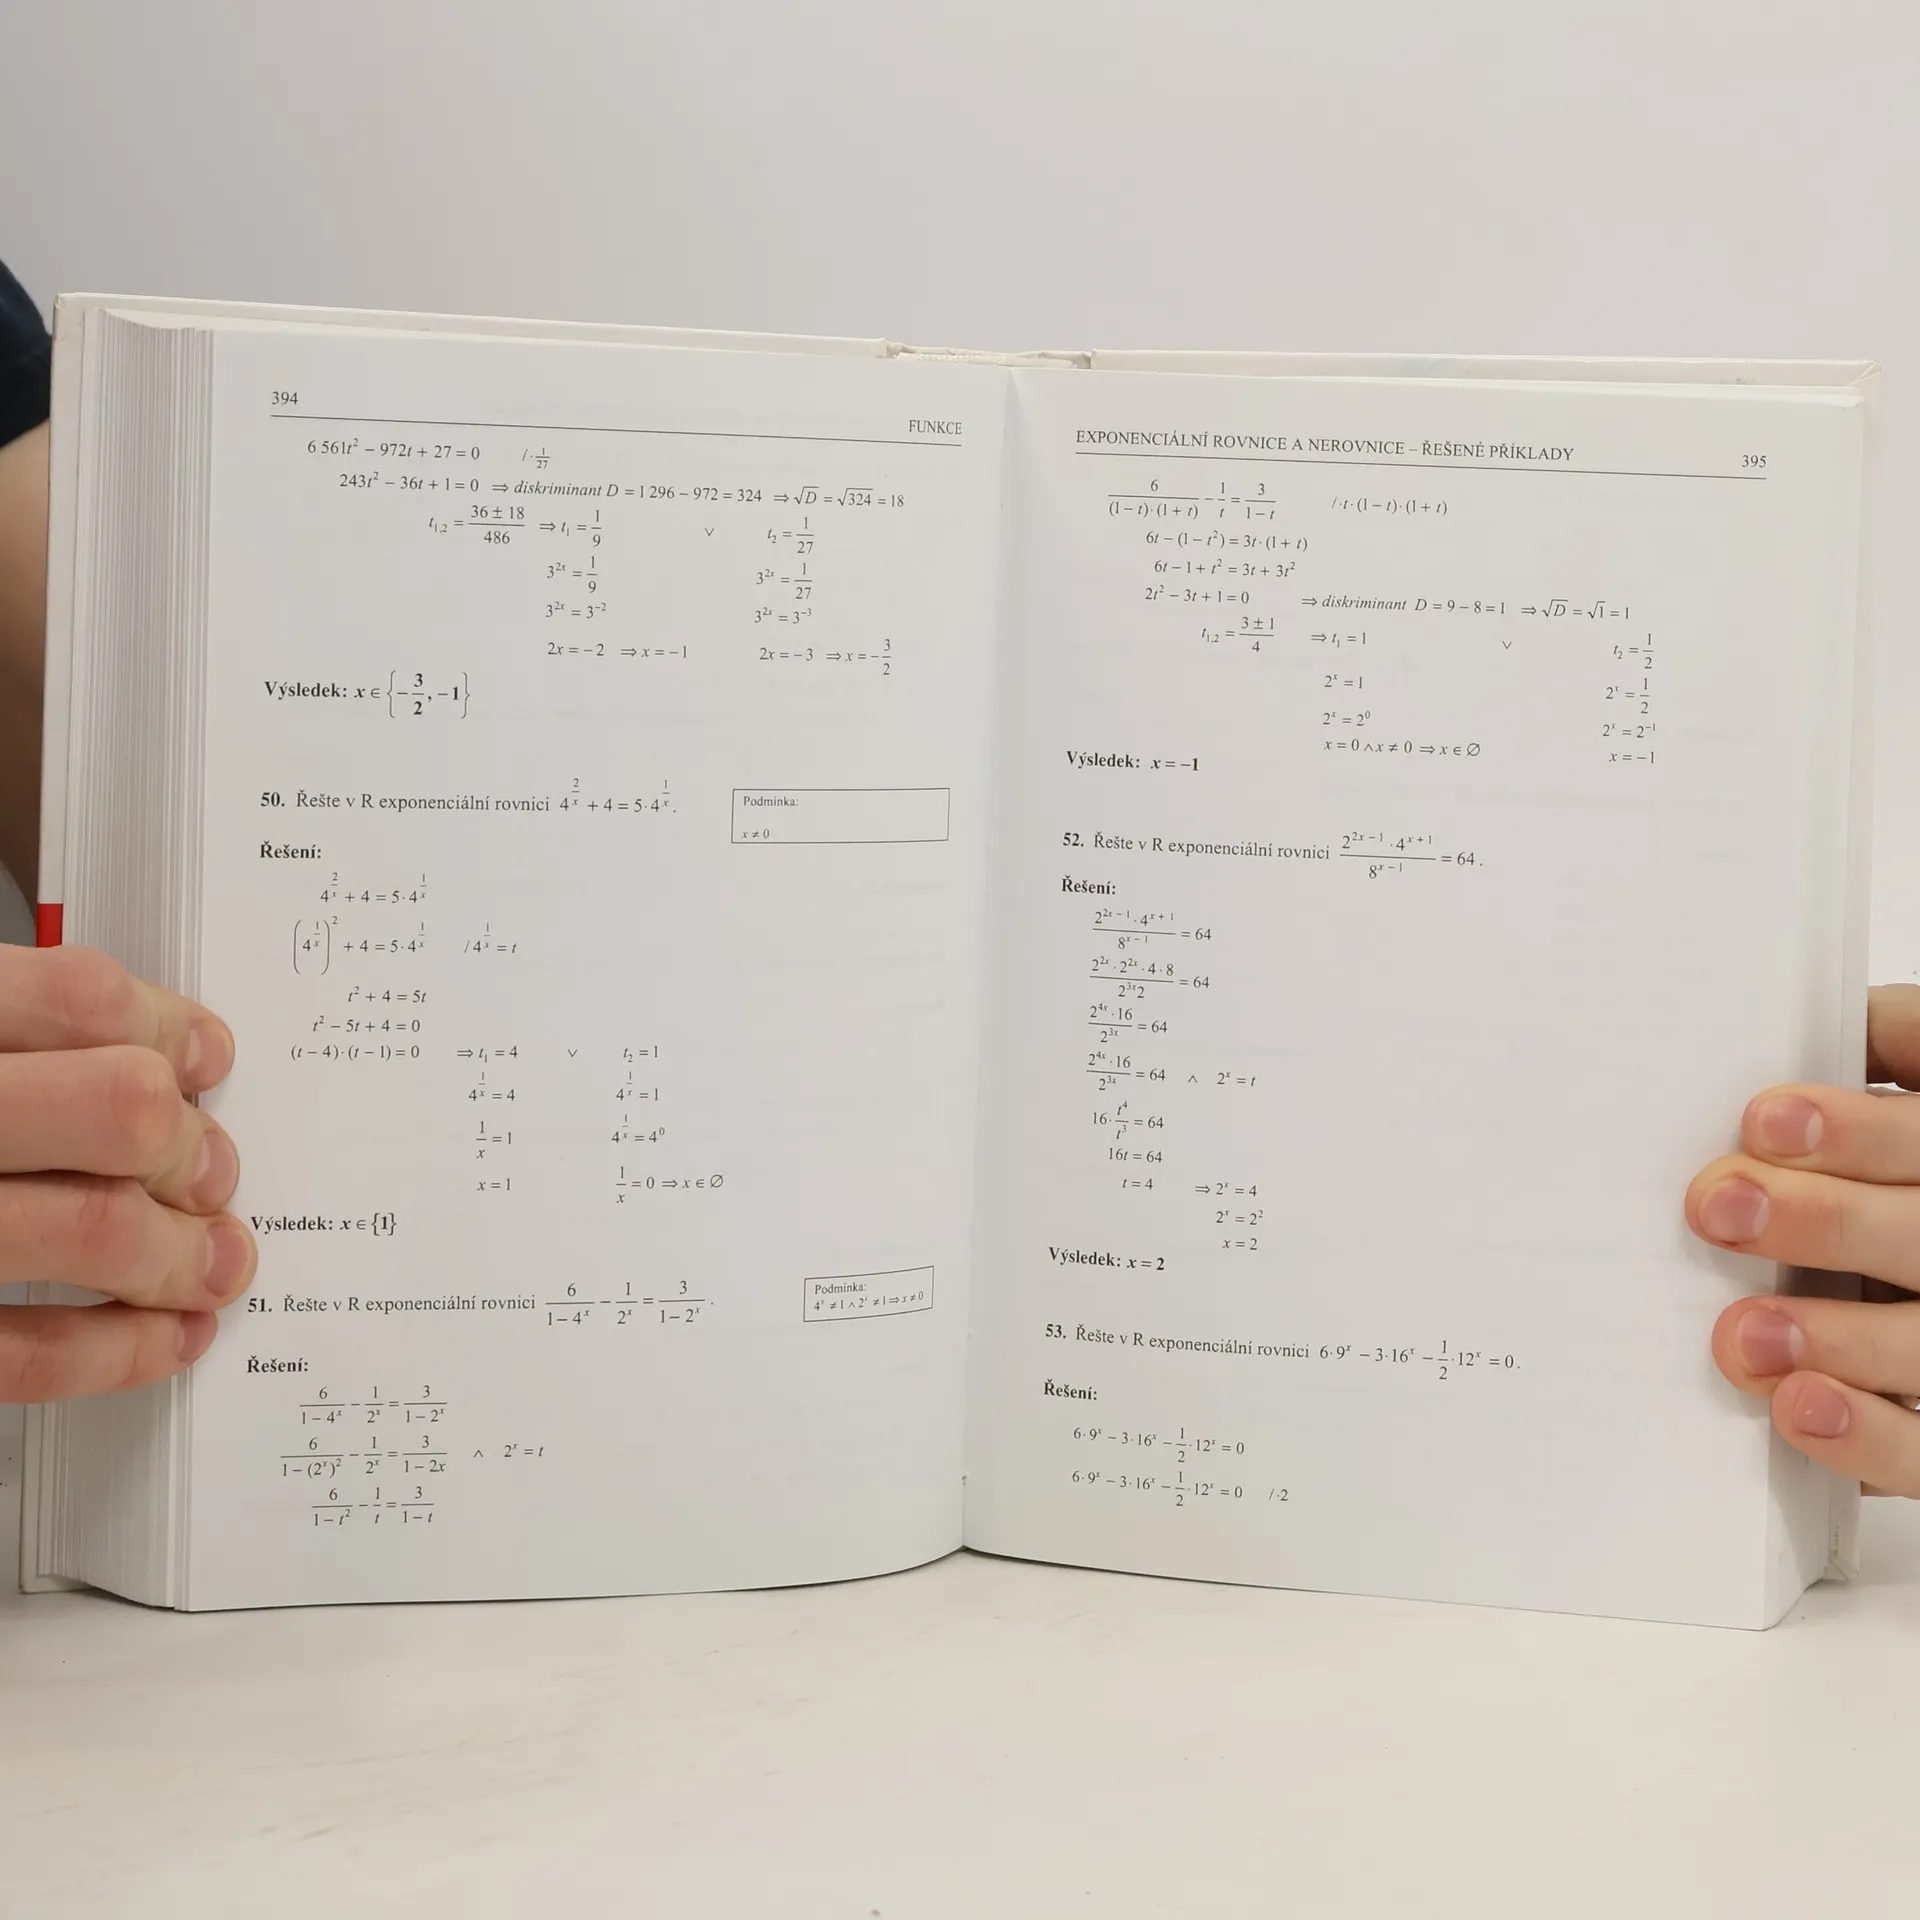 394
FUNKCE
6 561t² − 972t + 27 = 0 /·1/27
243t² − 36t + 1 = 0 ⇒ diskriminant D = 1 296 − 972 = 324 ⇒ √D = √324 = 18
t₁,₂ = (36 ± 18)/486 ⇒ t₁ = 1/9 ∨ t₂ = 1/27
3^(2x) = 1/9 3^(2x) = 1/27
3^(2x) = 3^(−2) 3^(2x) = 3^(−3)
2x = −2 ⇒ x = −1 2x = −3 ⇒ x = −3/2
Výsledek: x ∈ {−3/2, −1}
50. Řešte v R exponenciální rovnici 4^(2/x) + 4 = 5·4^(1/x).
Podmínka:
x ≠ 0
Řešení:
4^(2/x) + 4 = 5·4^(1/x)
(4^(1/x))² + 4 = 5·4^(1/x) / 4^(1/x) = t
t² + 4 = 5t
t² − 5t + 4 = 0
(t − 4)·(t − 1) = 0 ⇒ t₁ = 4 ∨ t₂ = 1
4^(1/x) = 4 4^(1/x) = 1
1/x = 1 4^(1/x) = 4⁰
x = 1 1/x = 0 ⇒ x ∈ ∅
Výsledek: x ∈ {1}
51. Řešte v R exponenciální rovnici 6/(1 − 4^x) − 1/2^x = 3/(1 − 2^x).
Podmínka:
4^x ≠ 1 ∧ 2^x ≠ 1 ⇒ x ≠ 0
Řešení:
6/(1 − 4^x) − 1/2^x = 3/(1 − 2^x)
6/(1 − (2^x)²) − 1/2^x = 3/(1 − 2x) ∧ 2^x = t
6/(1 − t²) − 1/t = 3/(1 − t)
EXPONENCIÁLNÍ ROVNICE A NEROVNICE – ŘEŠENÉ PŘÍKLADY
395
6/((1 − t)·(1 + t)) − 1/t = 3/(1 − t) /·t·(1 − t)·(1 + t)
6t − (1 − t²) = 3t·(1 + t)
6t − 1 + t² = 3t + 3t²
2t² − 3t + 1 = 0 ⇒ diskriminant D = 9 − 8 = 1 ⇒ √D = √1 = 1
t₁,₂ = (3 ± 1)/4 ⇒ t₁ = 1 ∨ t₂ = 1/2
2^x = 1 2^x = 1/2
2^x = 2⁰ 2^x = 2^(−1)
x = 0 ∧ x ≠ 0 ⇒ x ∈ ∅ x = −1
Výsledek: x = −1
52. Řešte v R exponenciální rovnici (2^(2x − 1)·4^(x + 1))/8^(x − 1) = 64.
Řešení:
(2^(2x − 1)·4^(x + 1))/8^(x − 1) = 64
(2^(2x)·2^(2x)·4·8)/(2^(3x)2) = 64
(2^(4x)·16)/2^(3x) = 64
(2^(4x)·16)/2^(3x) = 64 ∧ 2^x = t
16·t⁴/t³ = 64
16t = 64
t = 4 ⇒ 2^x = 4
2^x = 2²
x = 2
Výsledek: x = 2
53. Řešte v R exponenciální rovnici 6·9^x − 3·16^x − 1/2·12^x = 0.
Řešení:
6·9^x − 3·16^x − 1/2·12^x = 0
6·9^x − 3·16^x − 1/2·12^x = 0 /·2